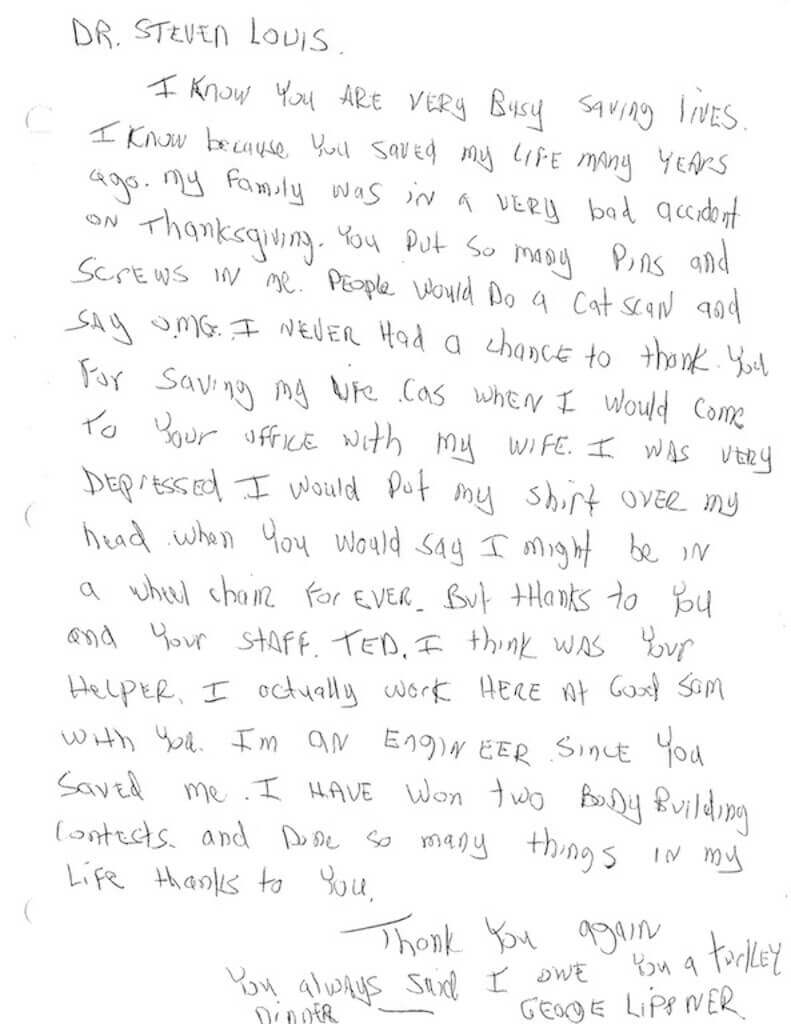 DR. STEVEN LOUIS.
I KNOW YOU ARE VERY BUSY SAVING LIVES.
I KNOW because you SAVED my LIFE MANY YEARS
ago. my family was in a VERY bad accident
ON Thanksgiving. You put so many Pins and
SCREWS IN me. PEOPLE Would Do a Cat scan and
SAY O.M.G. I NEVER Had a chance to thank you
For saving my life. Cas WHEN I would come
To your office with my WIFE. I WAS VERY
DEPRESSED. I would put my shirt OVER my
head when you would say I might be in
a wheel chair FOREVER. But thanks to You
and your STAFF. TED, I think WAS Your
HELPER. I actually work HERE At Good Sam
with You. I'm an ENGINEER. SINCE You
saved me. I HAVE won two Body Building
contests. and Done so many things in my
Life thanks to You.
Thank You again
You always said I OWE You a turkey
DINNER
GEORGE LIPPNER